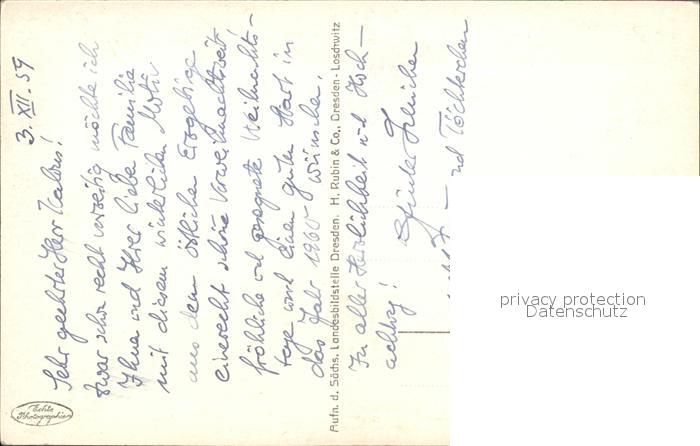 3. XII. 59
Sehr geehrter Herr
zwar schon recht vorzeitig möchte ich
Ihnen und Ihrer lieben Familie
mit diesem winterlichen Motiv
aus dem östlichen Erzgebirge
eine recht schöne Vorweihnachtszeit
fröhliche und gesegnete Weihnachts-
tage und einen guten Start in
das Jahr 1960 wünschen.
In aller Herzlichkeit und Hoch-
achtung!
Günter
und Töchterchen
Aufn. d. Sächs. Landesbildstelle Dresden. H. Rubin & Co., Dresden-Loschwitz
Echte
Photographie
privacy protection
Datenschutz